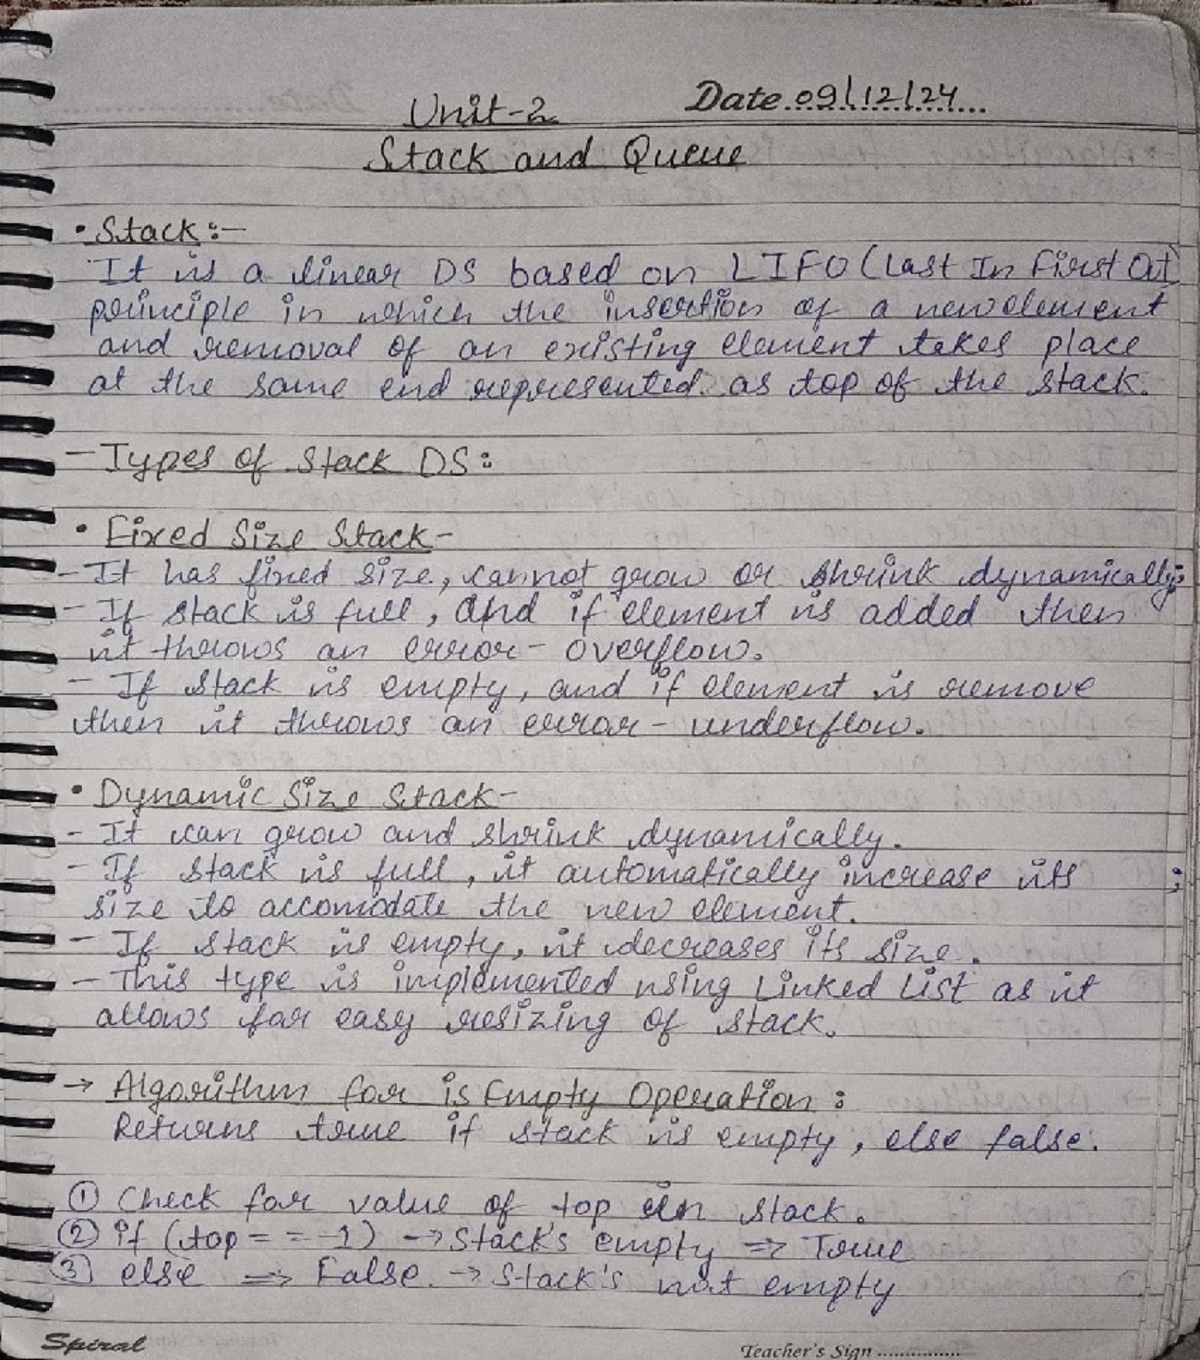 Date 09/12/24
Unit-2
Stack and Queue
• Stack :-
It is a linear DS based on LIFO (Last In First Out)
principle in which the insertion of a new element
and removal of an existing element takes place
at the same end represented as top of the stack.
- Types of Stack DS:
• Fixed Size Stack-
- It has fixed size, cannot grow or shrink dynamically;
- If stack is full, and if element is added then
it throws an error - overflow.
- If stack is empty, and if element is remove
then it throws an error - underflow.
• Dynamic Size Stack-
- It can grow and shrink dynamically.
- If stack is full, it automatically increase its ;
size to accomodate the new element.
- If stack is empty, it decreases its size.
- This type is implemented using Linked List as it
allows for easy resizing of stack.
→ Algorithm for is Empty Operation :
Returns true if stack is empty, else false.
① Check for value of top in stack.
② if (top = = -1) → Stack's empty ⇒ True
③ else ⇒ False → Stack's not empty
Spiral
Teacher's Sign ................